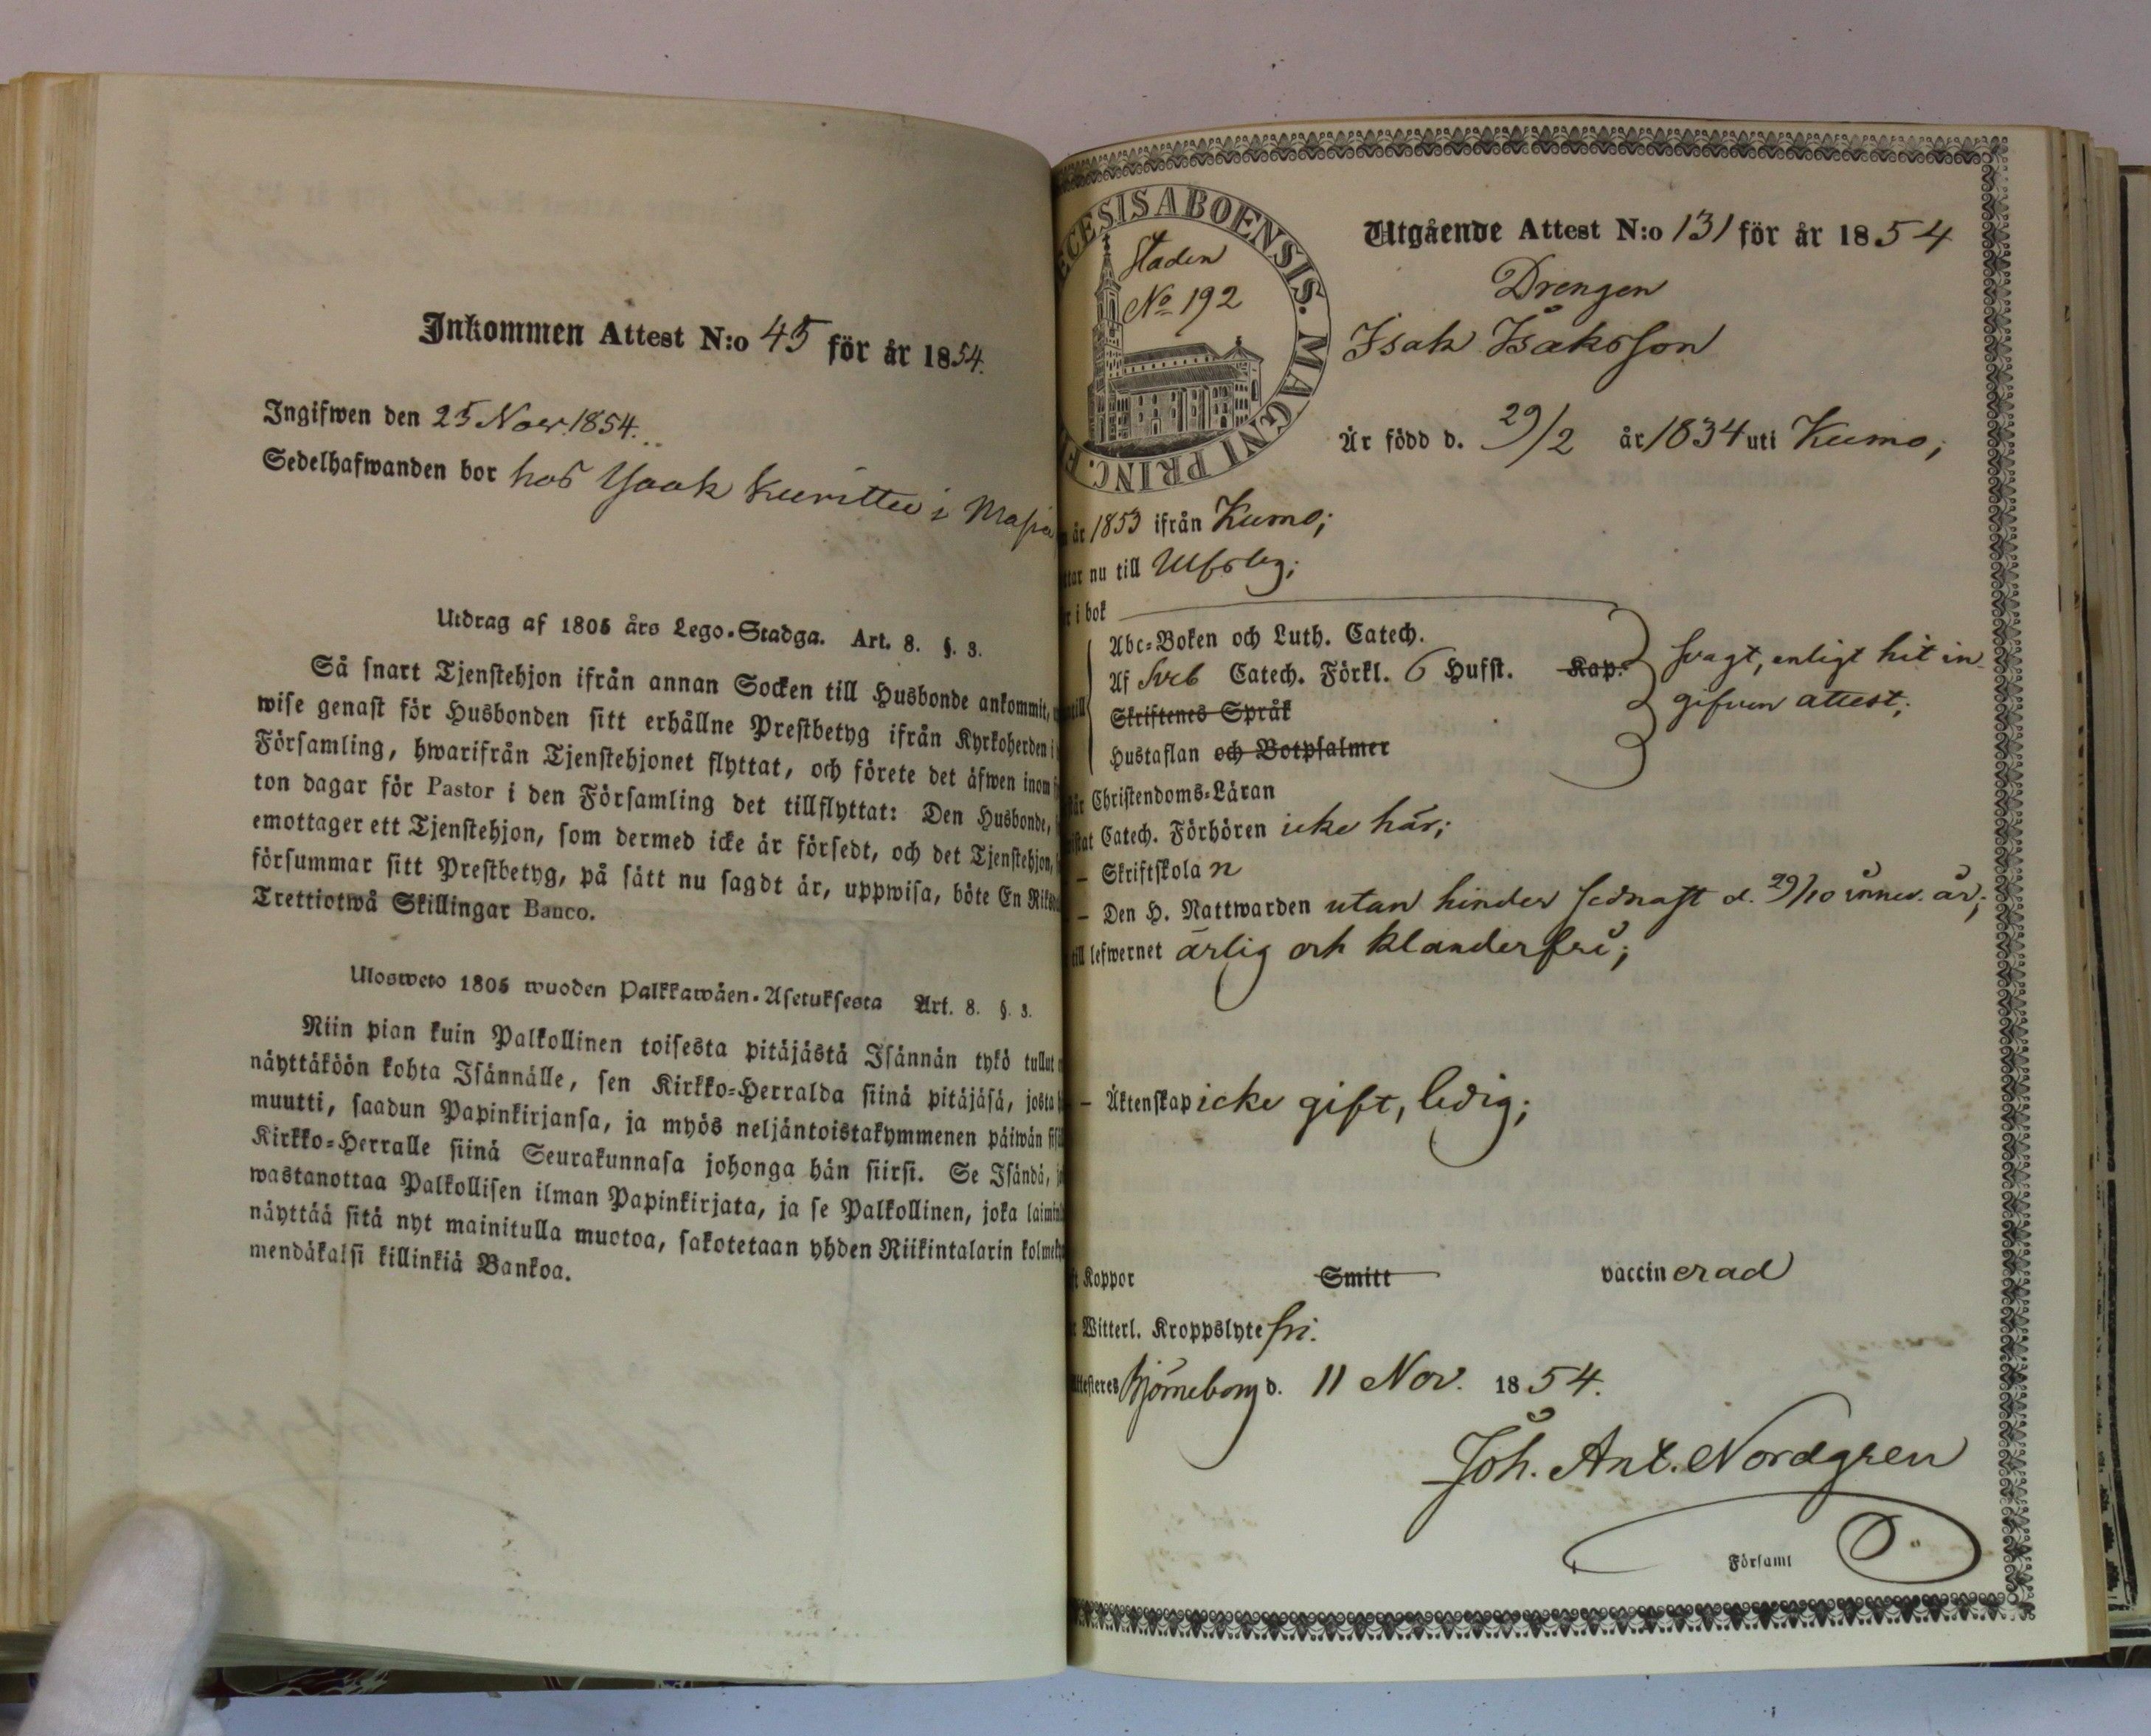 Inkommen Attest N:o 45 för år 1854.
Ingifwen den 25 Nov. 1854.
Sedelhafwanden bor hos Isaak i
Utdrag af 1805 års Lego-Stadga. Art. 8. §. 3.
Så snart Tjenstehjon ifrån annan Socken till Husbonde ankommit,
wise genast för Husbonden sitt erhållne Prestbetyg ifrån Kyrkoherden i
Församling, hwarifrån Tjenstehjonet flyttat, och förete det äfwen inom
ton dagar för Pastor i den Församling det tillflyttat: Den Husbonde,
emottager ett Tjenstehjon, som dermed icke är försedt, och det Tjenstehjon,
försummar sitt Prestbetyg, på sätt nu sagdt är, uppwisa, böte En
Trettiotwå Skillingar Banco.
Ulosweto 1805 wuoden Palkkawäen-Asetuksesta Art. 8. §. 3.
Niin pian kuin Palkollinen toisesta pitäjästä Isännän tykö tullut
näyttäköön kohta Isännälle, sen Kirkko-Herralda siinä pitäjäsä, josta
muutti, saadun Papinkirjansa, ja myös neljäntoistakymmenen päiwän
Kirkko-Herralle siinä Seurakunnasa johonga hän siirsi. Se Isändä,
wastanottaa Palkollisen ilman Papinkirjata, ja se Palkollinen, joka
näyttää sitä nyt mainitulla muotoa, sakotetaan yhden Riikintalarin
mendäkalsi killinkiä Bankoa.
ECESIS ABOENSIS. MAGNI PRINC. F
Staden
No 192
Utgående Attest N:o 131 för år 1854
Drengen
Isak Isaksson
Är född d. 29/2 år 1834 uti Kumo;
år 1853 ifrån Kumo;
nu till Ulfsby;
i bok
Abc-Boken och Luth. Catech.
Af Sveb Catech. Förkl. 6 Hufst. Kap.
Skriftenes Språk
Hustaflan och Botpsalmer
svagt, enligt hit in-
gifven attest;
Christendoms-Läran
Catech. Förhören icke här;
– Skriftskolan
– Den H. Nattwarden utan hinder sednast d. 29/10 innev. år;
till lefwernet ärlig och klanderfri;
– Äktenskap icke gift, ledig;
Koppor Smitt vaccinerad
Witterl. Kroppslyte fri.
Björneborg d. 11 Nov. 1854.
Joh. Ant. Nordgren
Församl